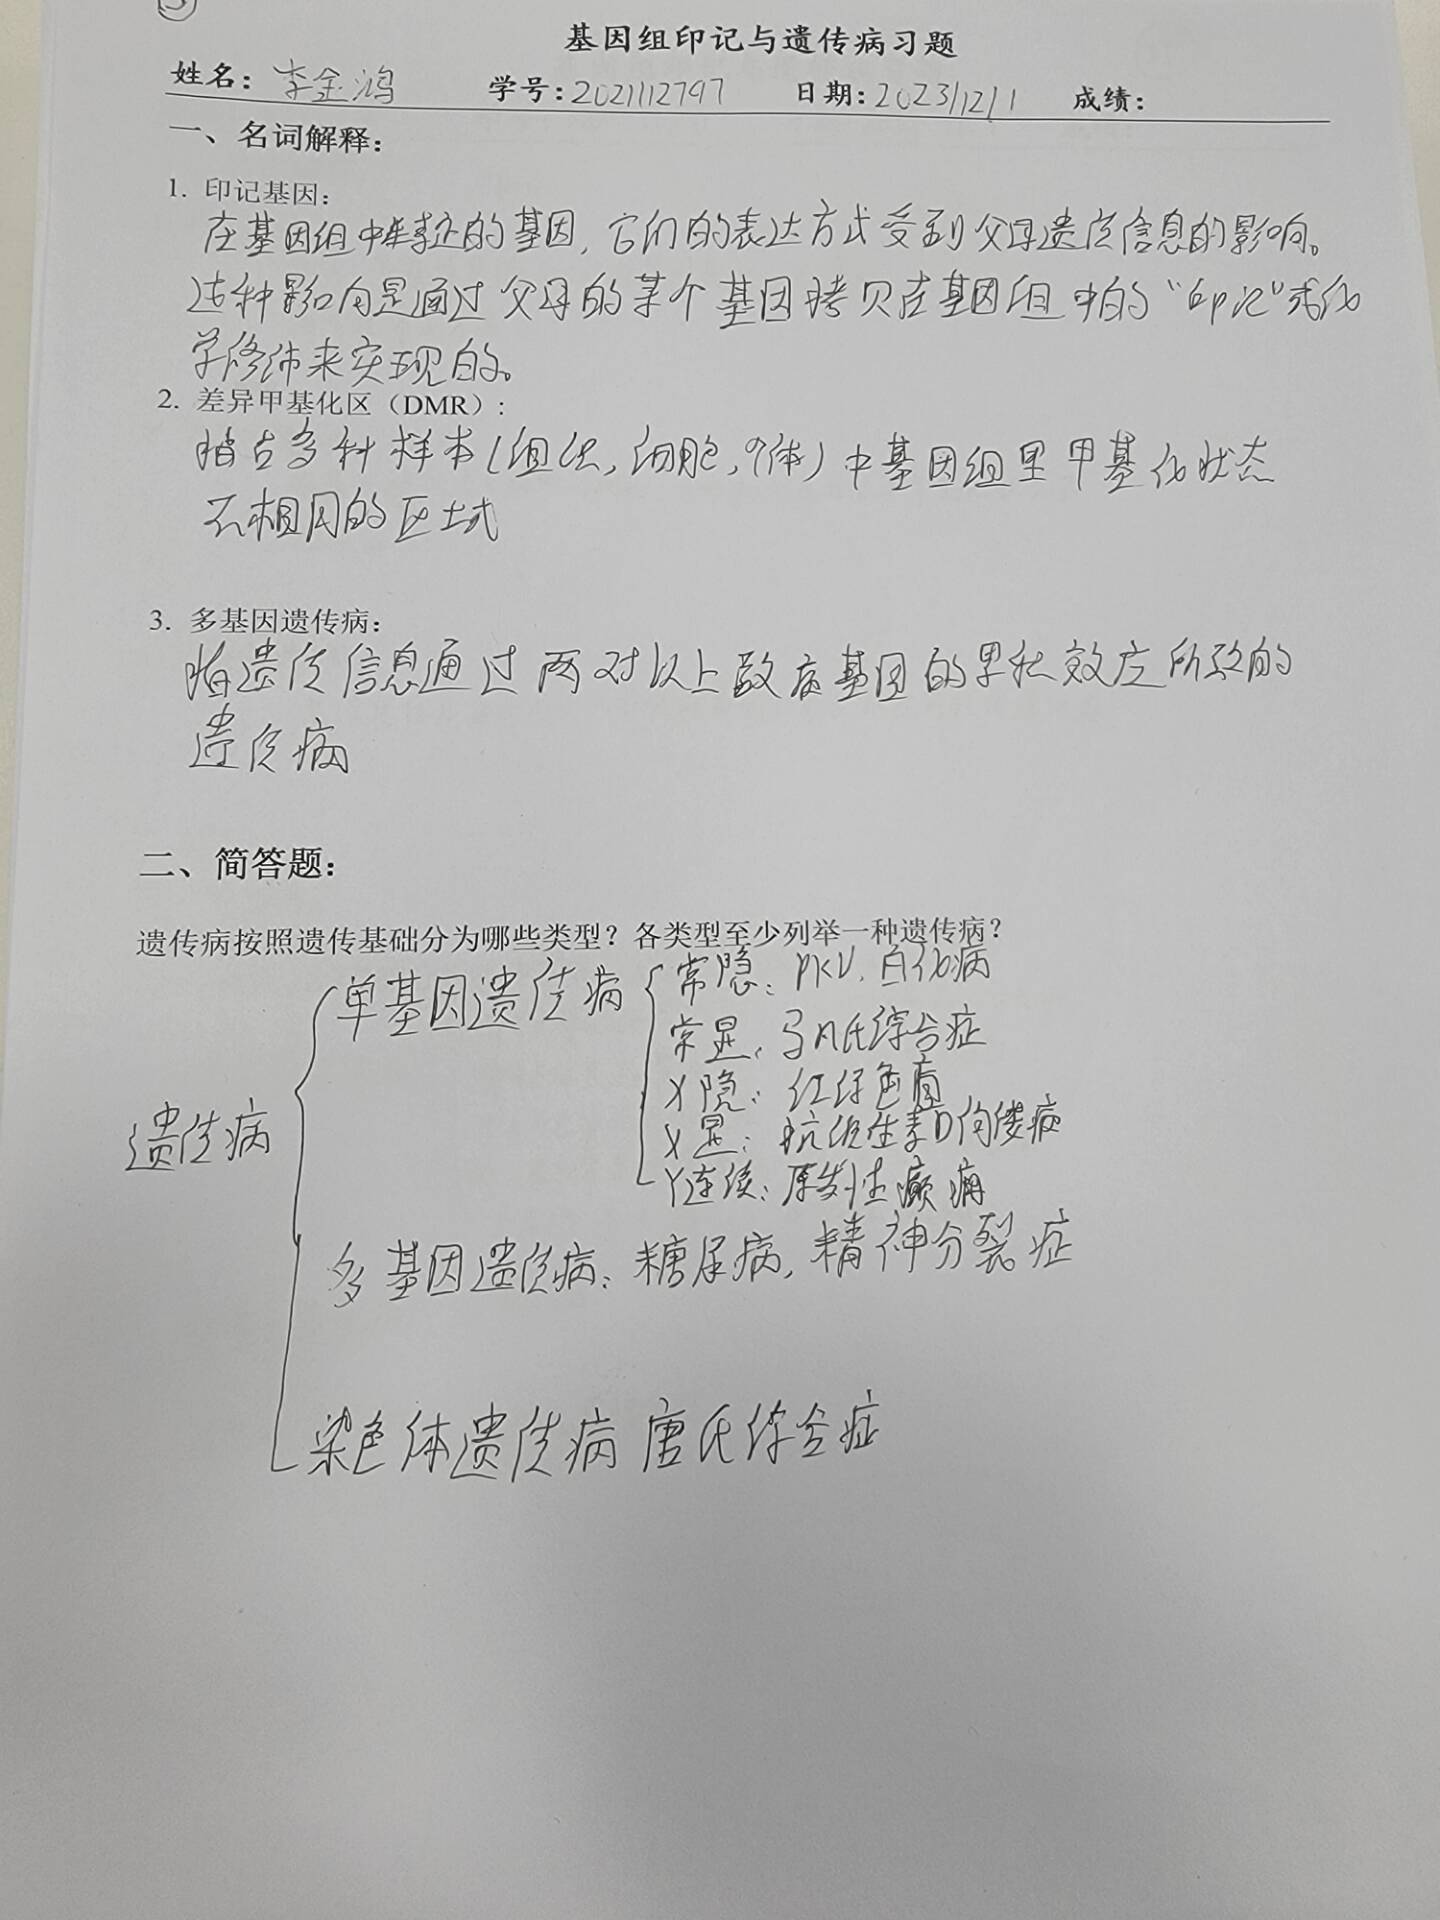 ③
基因组印记与遗传病习题
姓名：李金鸿 学号：2021112797 日期：2023/12/1 成绩：
一、名词解释：
1. 印记基因：
在基因组中 的基因，它们的表达方式受到父母遗传信息的影响。
这种影响是通过父母的某个基因拷贝在基因组中的“印记”或化
学修饰来实现的。
2. 差异甲基化区（DMR）：
指占多种样本（组织，细胞，个体）中基因组里甲基化状态
不相同的区域
3. 多基因遗传病：
指遗传信息通过两对以上致病基因的累积效应所致的
遗传病
二、简答题：
遗传病按照遗传基础分为哪些类型？各类型至少列举一种遗传病？
单基因遗传病
常隐：PKU，白化病
常显：马凡氏综合症
X隐：红绿色盲
X显：抗维生素D佝偻病
Y连续：原发性癫痫
遗传病
多基因遗传病：糖尿病，精神分裂症
染色体遗传病 唐氏综合症